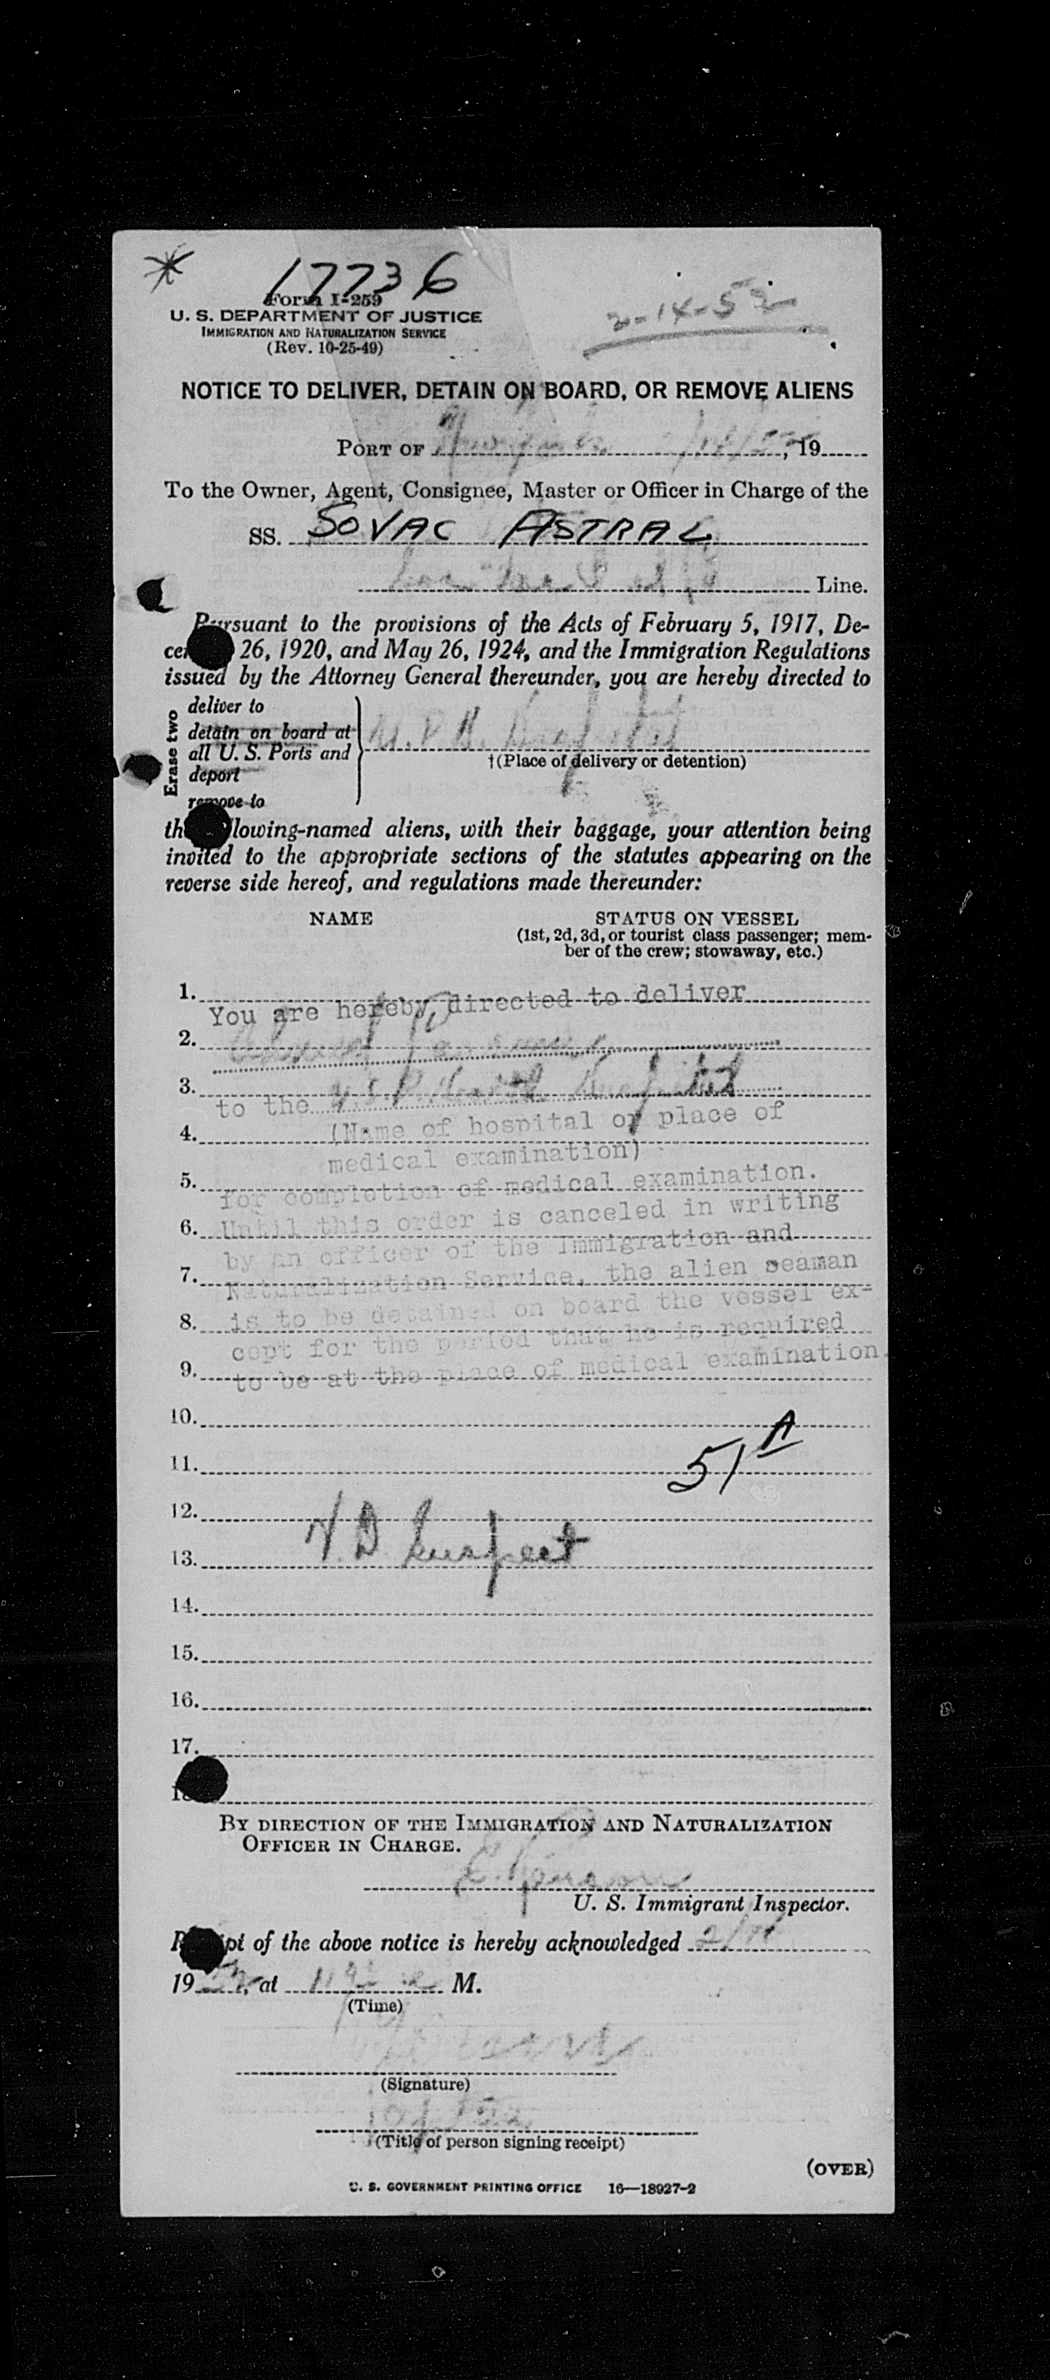 17736
2-14-52
Form I-259
U. S. DEPARTMENT OF JUSTICE
IMMIGRATION AND NATURALIZATION SERVICE
(Rev. 10-25-49)
NOTICE TO DELIVER, DETAIN ON BOARD, OR REMOVE ALIENS
PORT OF , 19
To the Owner, Agent, Consignee, Master or Officer in Charge of the
SS. SOVAC ASTRAL
Line.
Pursuant to the provisions of the Acts of February 5, 1917, De-
26, 1920, and May 26, 1924, and the Immigration Regulations
issued by the Attorney General thereunder, you are hereby directed to
Erase two
deliver to
detain on board at
all U. S. Ports and
deport
remove to
U.P.H. Hospital
†(Place of delivery or detention)
the following-named aliens, with their baggage, your attention being
invited to the appropriate sections of the statutes appearing on the
reverse side hereof, and regulations made thereunder:
NAME
STATUS ON VESSEL
(1st, 2d, 3d, or tourist class passenger; mem-
ber of the crew; stowaway, etc.)
1.
You are hereby directed to deliver
2.
3.
to the U.S.P. Health Hospital
4.
(Name of hospital or place of
medical examination)
5.
for completion of medical examination.
6.
Until this order is canceled in writing
by an officer of the Immigration and
7.
Naturalization Service, the alien seaman
is to be detained on board the vessel ex-
8.
cept for the period that he is required
9.
to be at the place of medical examination
10.
51 A
11.
12.
V.D. Suspect
13.
14.
15.
16.
17.
18.
BY DIRECTION OF THE IMMIGRATION AND NATURALIZATION
OFFICER IN CHARGE.
U. S. Immigrant Inspector.
Receipt of the above notice is hereby acknowledged 2/14
1952, at M.
(Time)
(Signature)
(Title of person signing receipt)
(OVER)
U. S. GOVERNMENT PRINTING OFFICE 16—18927-2